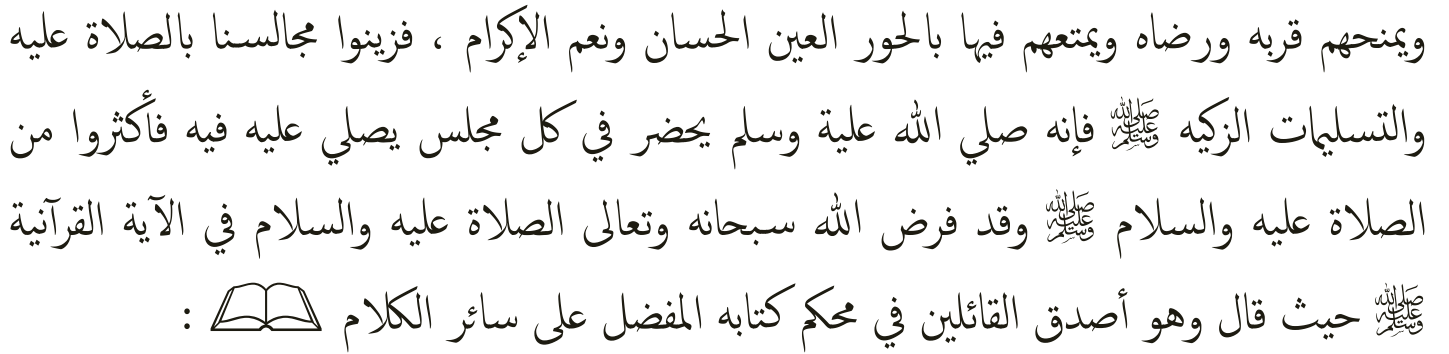 ويمنحهم قربه ورضاه ويمتعهم فيها بالحور العين الحسان ونعم الإكرام ، فزينوا مجالسنا بالصلاة عليه
والتسليمات الزكيه ﷺ فإنه صلي الله علية وسلم يحضر في كل مجلس يصلي عليه فيه فأكثروا من
الصلاة عليه والسلام ﷺ وقد فرض الله سبحانه وتعالى الصلاة عليه والسلام في الآية القرآنية
ﷺ حيث قال وهو أصدق القائلين في محكم كتابه المفضل على سائر الكلام :